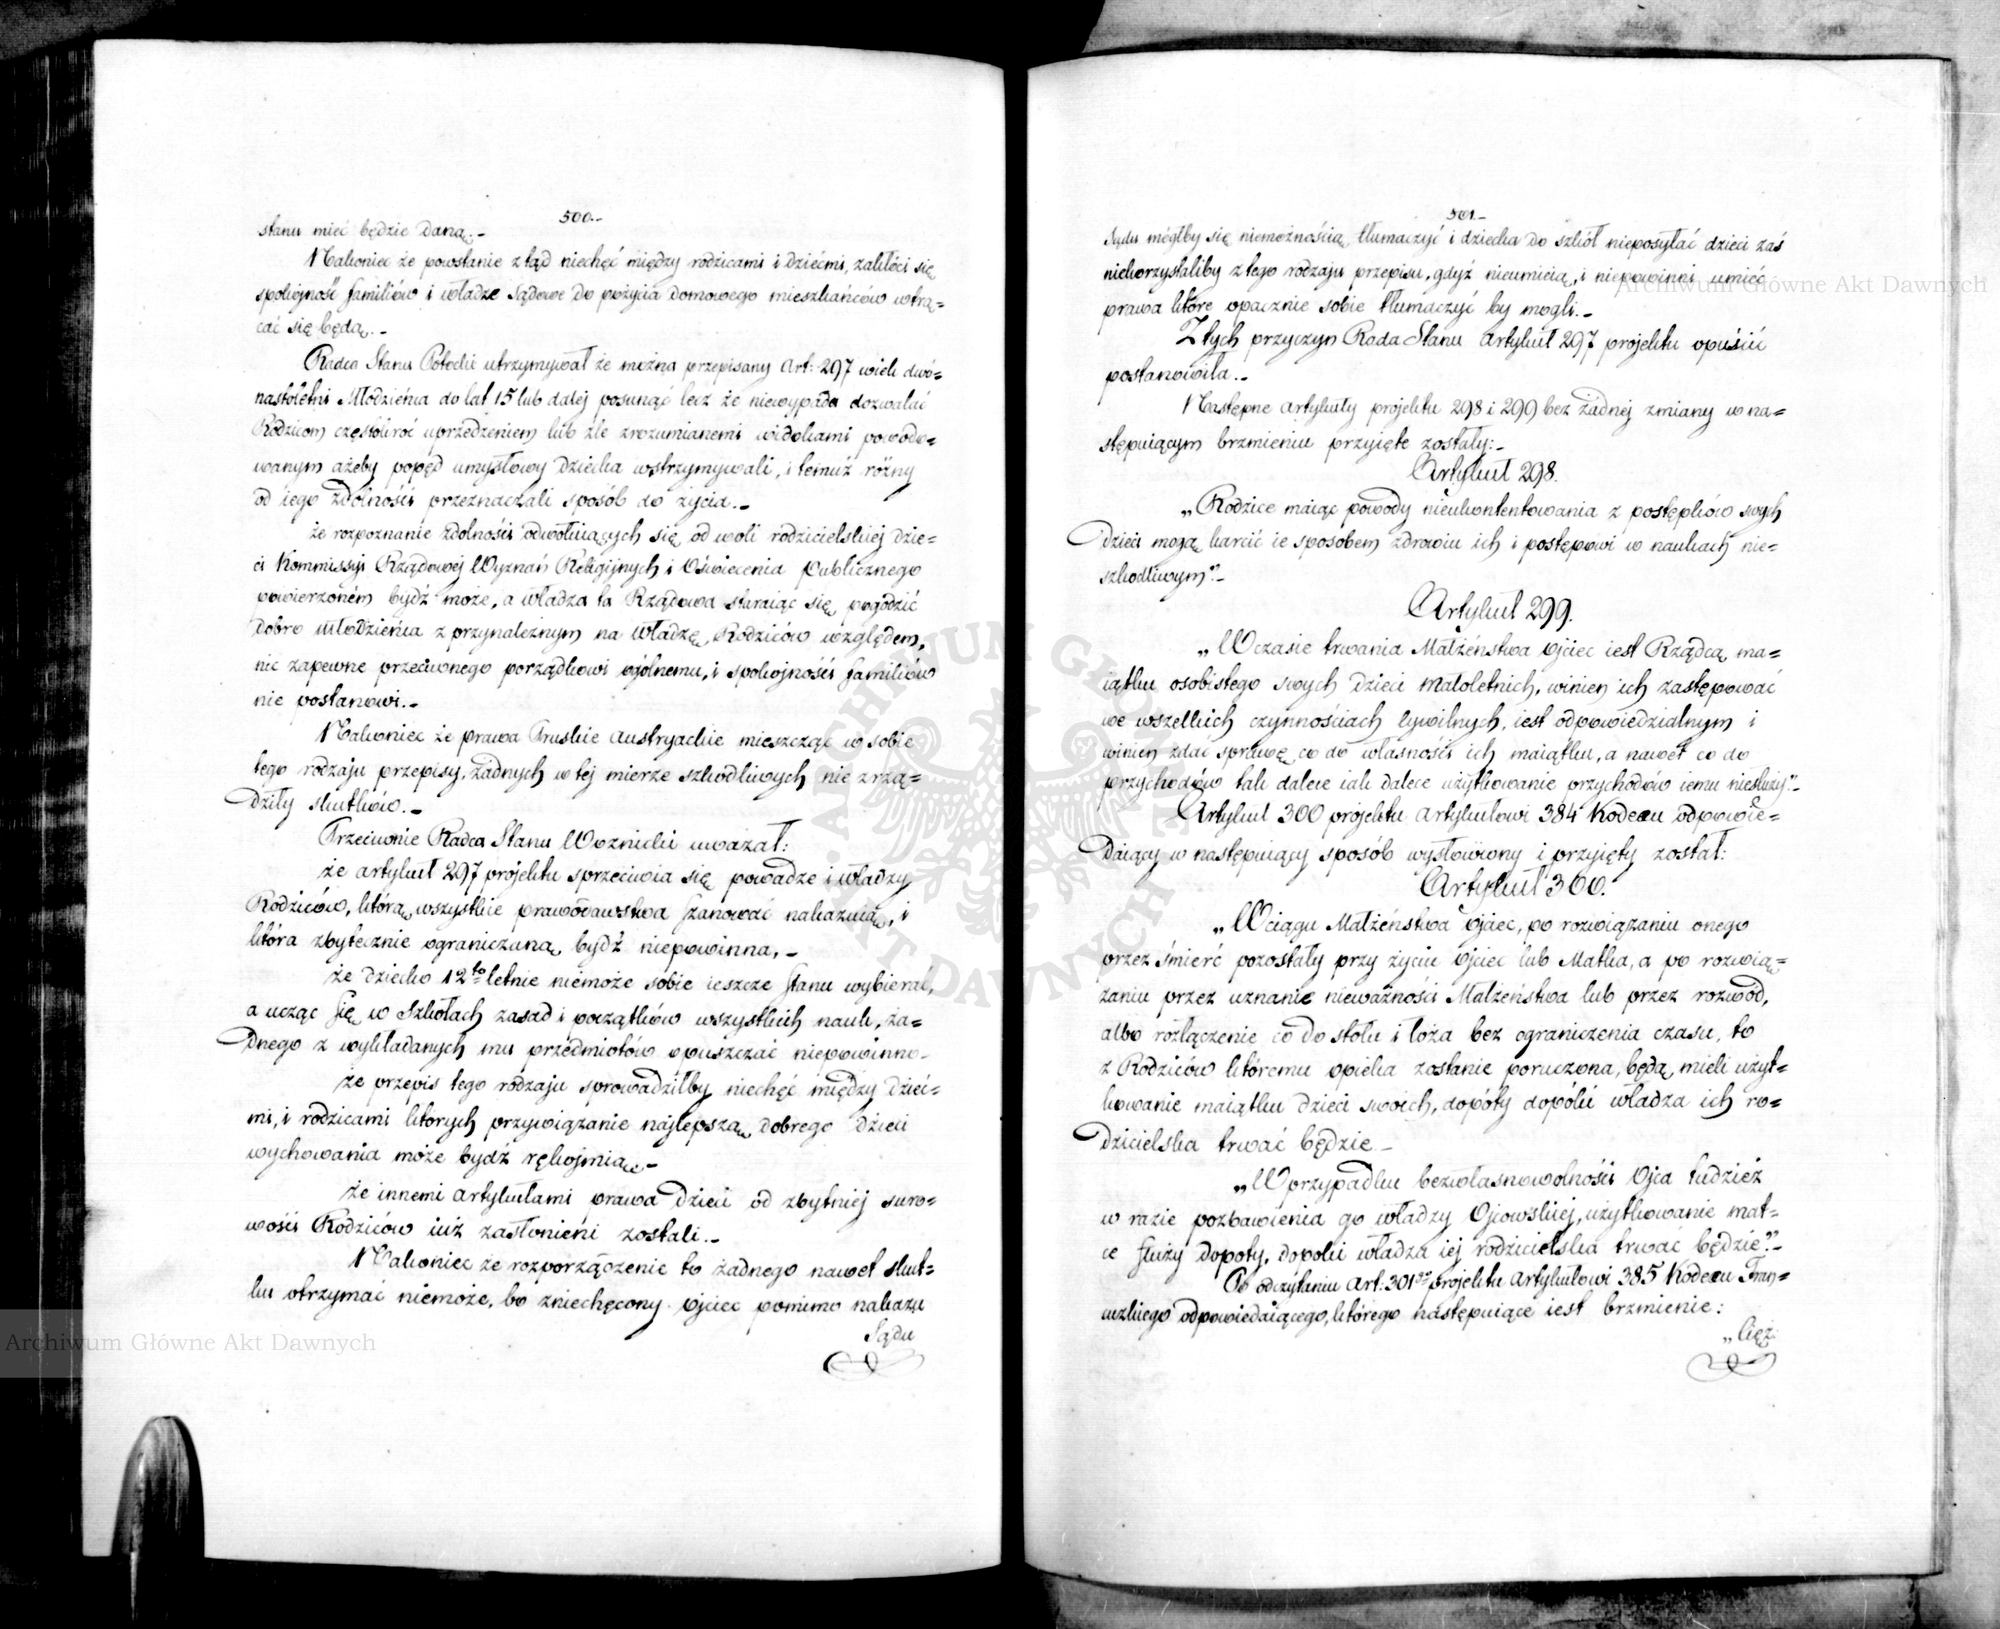 500.-
stanu mieć będzie daną.-
Nakoniec że powstanie ztąd niechęć między rodzicami i dziećmi, zakłóci się
spokojność familiów i władze Sądowe do pożycia domowego mieszkańców wtrą=
cać się będą.-
Radca Stanu Potocki utrzymywał że można przepisany Art: 297 wiek dwó=
nastoletni Młodzieńca do lat 15 lub dalej posunąć lecz że niewypada dozwalać
Rodzicom częstokroć uprzedzeniem lub źle zrozumianemi widokami powodo=
wanym ażeby popęd umysłowy dziecka wstrzymywali, i temuż różny
od iego zdolności przeznaczali sposób do życia.-
że rozpoznanie zdolności odwołuiących się od woli rodzicielskiej dzie=
ci Kommissyi Rządowej Wyznań Religijnych i Oświecenia Publicznego
powierzoném bydź może, a władza ta Rządowa staraiąc się pogodzić
dobro młodzieńca z przynależnym na władzę Rodziców względem,
nic zapewne przeciwnego porządkowi ogólnemu, i spokojności familiów
nie postanowi.-
Nakoniec że prawa Pruskie Austryackie mieszcząc w sobie
tego rodzaju przepisy, żadnych w tej mierze szkodliwych nie zrzą=
dziły skutków.-
Przeciwnie Radca Stanu Woznicki uważał:
że artykuł 297 projektu sprzeciwia się powadze i władzy
Rodziców, którą wszystkie prawodawstwa szanować nakazuią, i
która zbytecznie ograniczaną bydź niepowinna.-
że dziecko 12to letnie niemoże sobie ieszcze stanu wybierać,
a ucząc się w Szkołach zasad i początków wszystkich nauk, ża=
dnego z wykładanych mu przedmiotów opuszczać niepowinno.-
że przepis tego rodzaju sprowadziłby niechęć między dzieć=
mi, i rodzicami których przywiązanie najlepszą dobrego dzieci
wychowania może bydź rękojmią.-
że innemi artykułami prawa dzieci od zbytniej suro=
wości Rodziców iuż zasłonieni zostali.-
Nakoniec że rozporządzenie to żadnego nawet skut=
ku otrzymać niemoże, bo zniechęcony ojciec pomimo nakazu
Sądu
501.-
Sądu mógłby się niemożnością tłumaczyć i dziecka do szkół nieposyłać dzieci zaś
niekorzystaliby z tego rodzaju przepisu, gdyż nieumieią, i niepowinni umieć
prawa które opacznie sobie tłumaczyć by mogli.-
Z tych przyczyn Rada Stanu Artykuł 297 projektu opuścić
postanowiła.-
Następne artykuły projektu 298 i 299 bez żadnej zmiany w na=
stępuiącym brzmieniu przyięte zostały:-
Artykuł 298.
„Rodzice maiąc powody nieukontentowania z postępków swych
dzieci mogą karcić ie sposobem zdrowiu ich i postępowi w naukach nie=
szkodliwym".-
Artykuł 299.
„W czasie trwania Małżeństwa Ojciec iest Rządcą ma=
iątku osobistego swych dzieci małoletnich, winien ich zastępować
we wszelkich czynnościach cywilnych, iest odpowiedzialnym i
winien zdać sprawę co do własności ich maiątku, a nawet co do
przychodów tak dalece iak dalece użytkowanie przychodów iemu niesłuży".-
Artykuł 300 projektu artykułowi 384 Kodexu odpowie=
daiący w następuiący sposób wysłowiony i przyięty został:
Artykuł 300.
„W ciągu Małżeństwa Ojciec, po rozwiązaniu onego
przez śmierć pozostały przy życiu Ojciec lub Matka, a po rozwią=
zaniu przez uznanie nieważności Małżeństwa lub przez rozwód,
albo rozłączenie co do stołu i łoża bez ograniczenia czasu, to
z Rodziców któremu opieka zostanie poruczona, będą mieli użyt=
kowanie maiątku dzieci swoich, dopóty dopóki władza ich ro=
dzicielska trwać będzie.-
„W przypadku bezwłasnowolności Ojca tudzież
w razie pozbawienia go władzy Ojcowskiej, użytkowanie mat=
ce służy dopoty, dopoki władza iej rodzicielska trwać będzie".-
Po odczytaniu Art. 301go projektu Artykułowi 385 Kodexu Fran=
cuzkiego odpowiedaiącego, którego następuiące iest brzmienie:
„Cięż:
Archiwum Główne Akt Dawnych
Archiwum Główne Akt Dawnych
ARCHIWUM GŁÓWNE AKT DAWNYCH